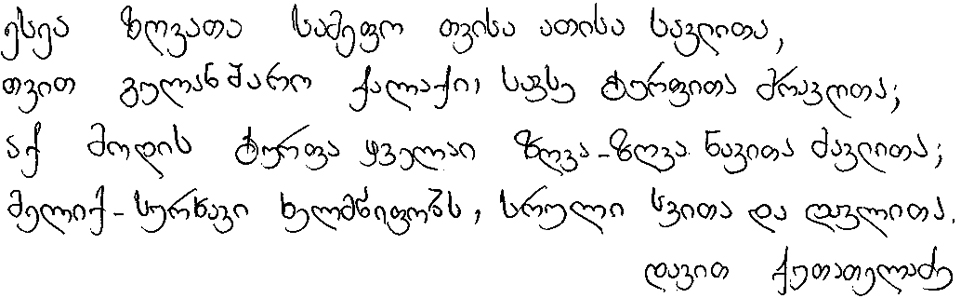 ესეა ზღვათა სამეფო თვისა ათისა სავლითა,
თვით გულანშარო ქალაქი, სავსე ტურფითა მრავლითა;
აქ მოდის ტურფა ყველაი ზღვა-ზღვა ნავითა მავლითა;
მელიქ-სურხავი ხელმწიფობს, სრული სვითა და დავლითა.
დავით ქუთათელაძე